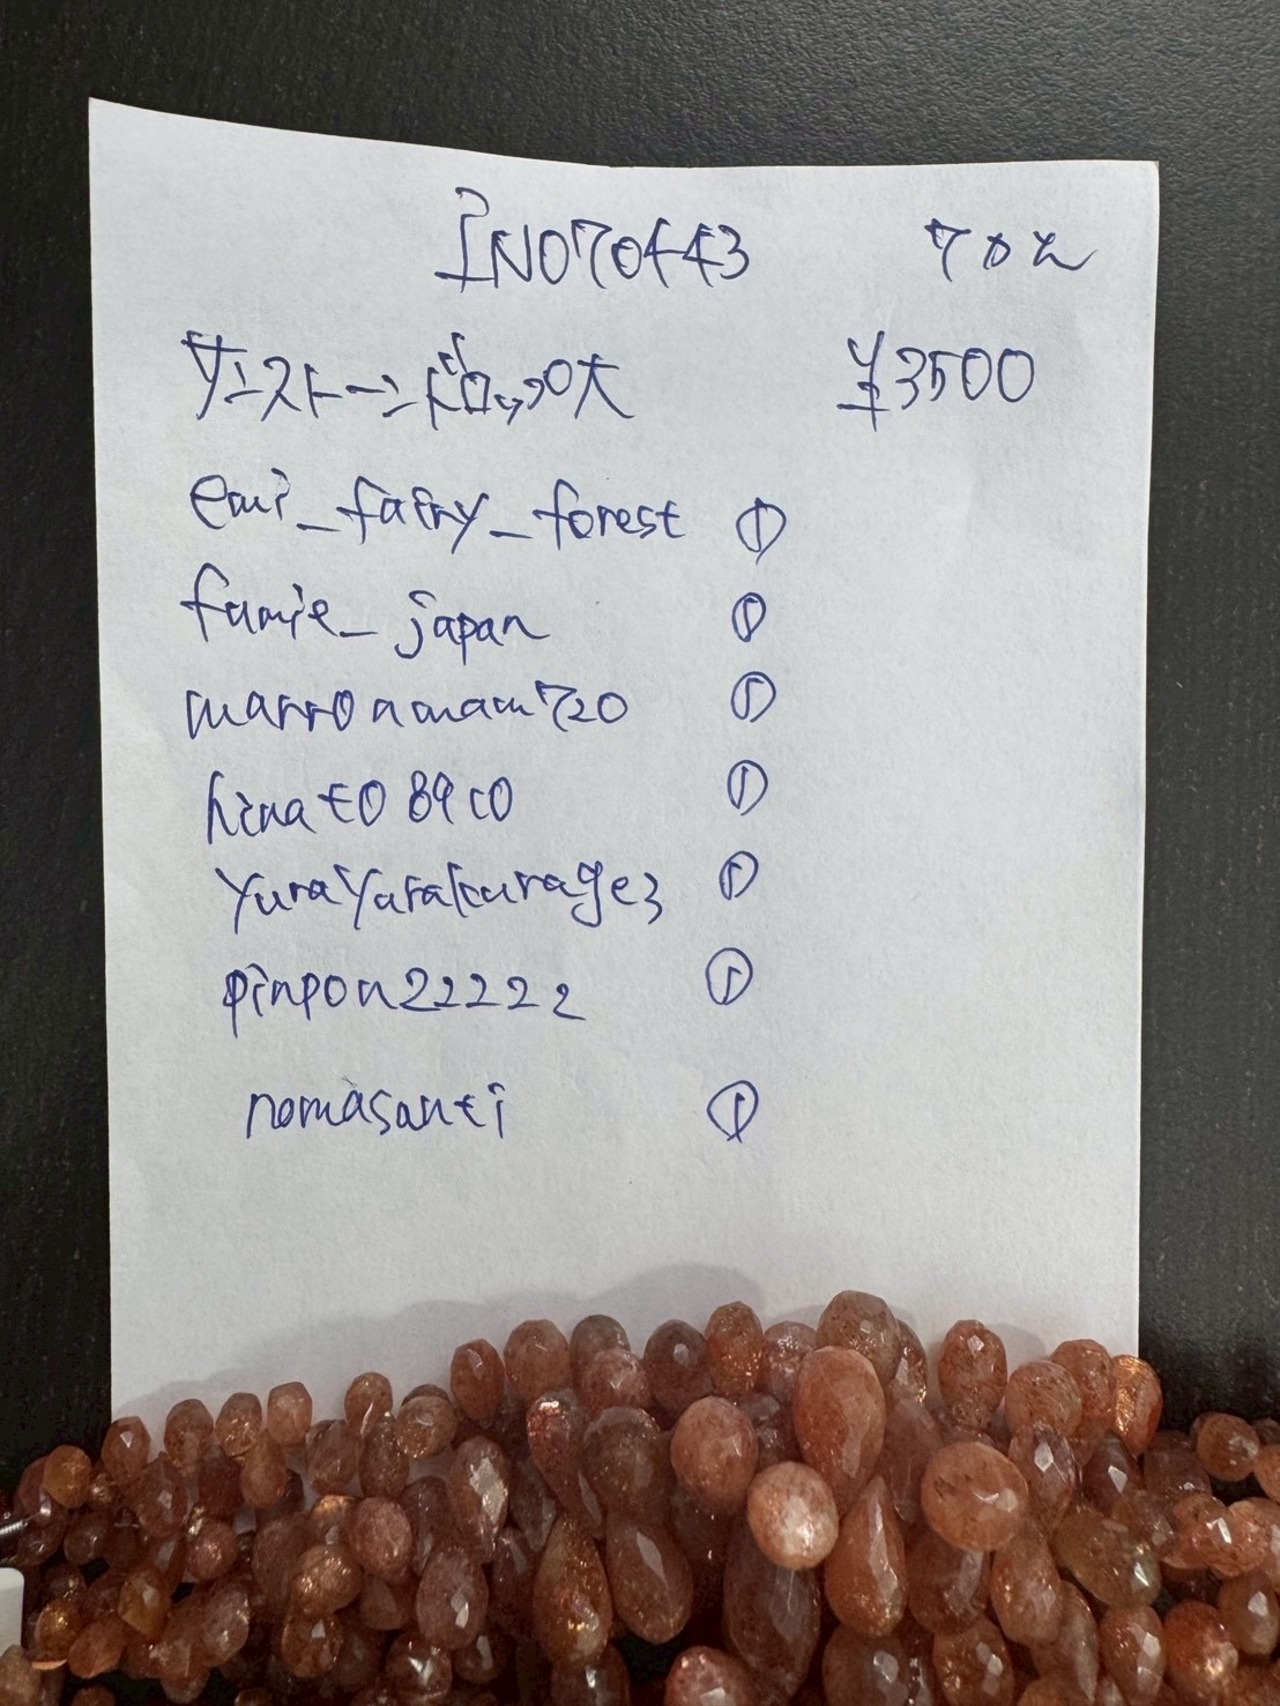 INO70443 7コ入
サンストーンドロップ大 ¥3500
emi_fairy_forest ①
fumie_japan ①
marronmam720 ①
hinato8910 ①
yurayurakurage3 ①
pinpon22222 ①
nomasanti ①